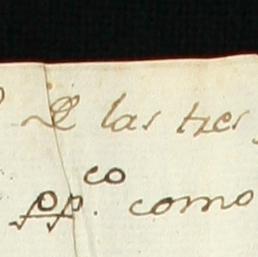 las tres
pp.co como